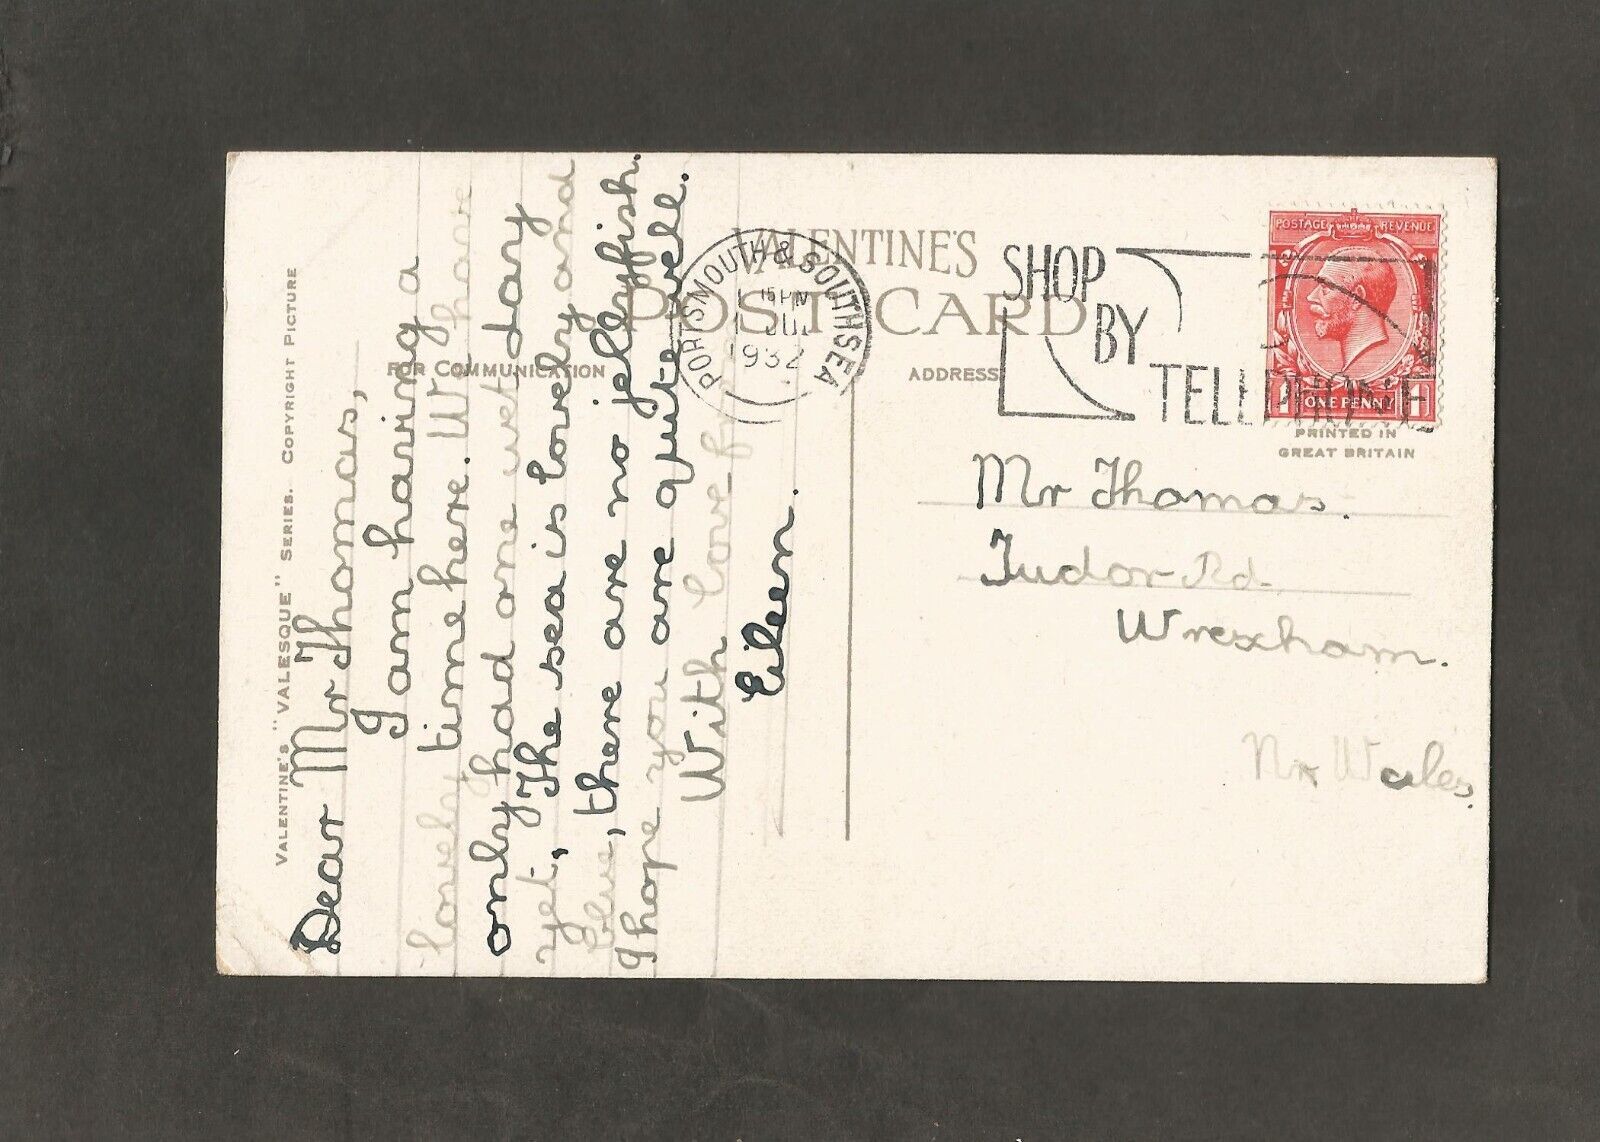 VALENTINE'S "VALESQUE" SERIES. COPYRIGHT PICTURE
VALENTINE'S
POST CARD
FOR COMMUNICATION
ADDRESS
Dear Mr Thomas,
I am having a
lovely time here. We have
only had one wet day
yet, The sea is lovely and
blue, there are no jellyfish.
I hope you are quite well.
With love from
Eileen.
PORTSMOUTH & SOUTHSEA
15 PM
1 JUL
1932
SHOP
BY
TELEPHONE
POSTAGE REVENUE
1 ONE PENNY 1
PRINTED IN
GREAT BRITAIN
Mr Thomas.
Tudor Rd.
Wrexham.
Nr Wales.